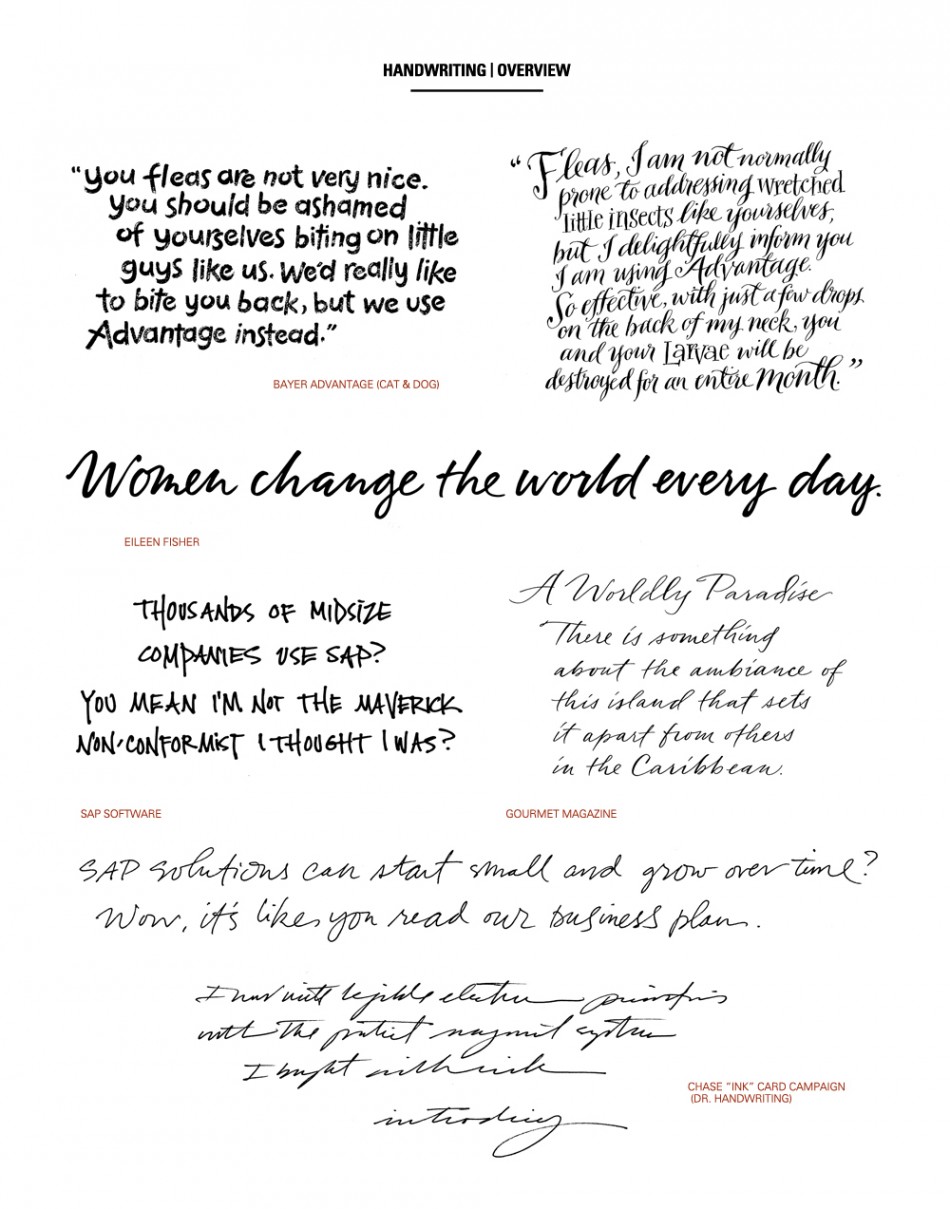 HANDWRITING | OVERVIEW
“you fleas are not very nice.
you should be ashamed
of yourselves biting on little
guys like us. We'd really like
to bite you back, but we use
Advantage instead.”
BAYER ADVANTAGE (CAT & DOG)
“Fleas, I am not normally
prone to addressing wretched
little insects like yourselves,
but I delightfully inform you
I am using Advantage.
So effective, with just a few drops
on the back of my neck, you
and your Larvae will be
destroyed for an entire month.”
Women change the world every day.
EILEEN FISHER
THOUSANDS OF MIDSIZE
COMPANIES USE SAP?
YOU MEAN I'M NOT THE MAVERICK
NON-CONFORMIST I THOUGHT I WAS?
SAP SOFTWARE
A Worldly Paradise
There is something
about the ambiance of
this island that sets
it apart from others
in the Caribbean.
GOURMET MAGAZINE
SAP solutions can start small and grow over time?
Wow, it's like you read our business plan.
I now write legible electronic
with the patient system
I bought with ink
introducing
CHASE “INK” CARD CAMPAIGN
(DR. HANDWRITING)